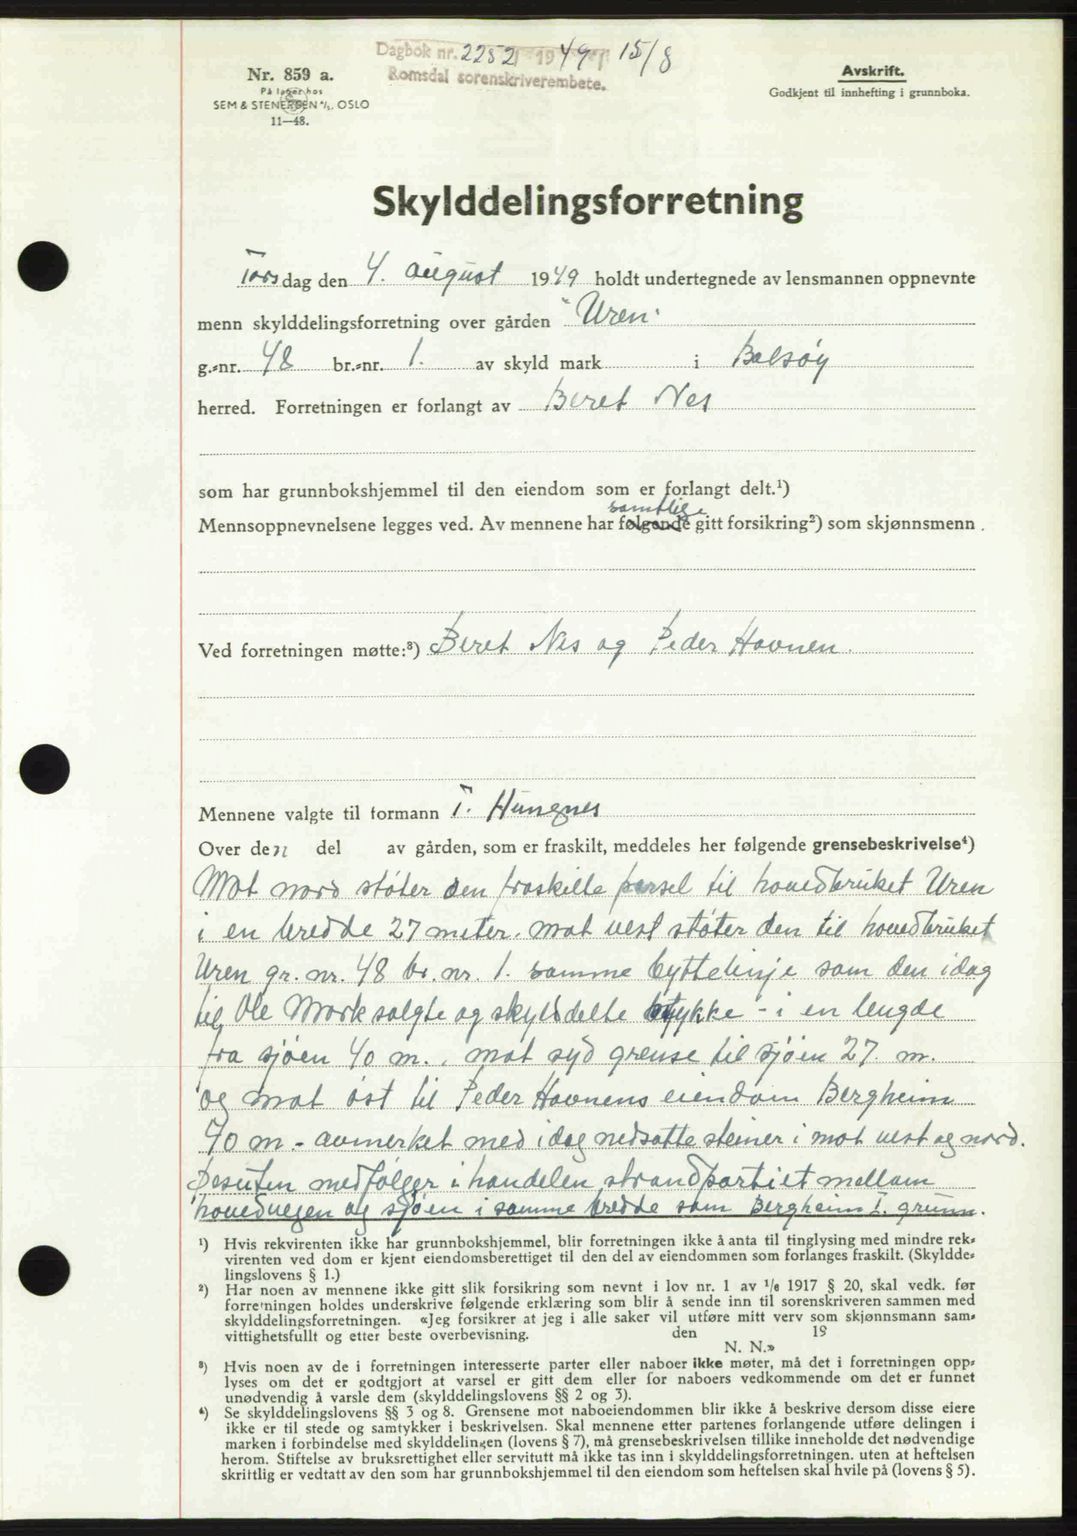 Dagbok nr. 2252 1949 15/8
Romsdal sorenskriverembete.
Nr. 859 a.
På lager hos
SEM & STENERSEN A/S, OSLO
11—48.
Avskrift.
Godkjent til innhefting i grunnboka.
Skylddelingsforretning
Torsdag den 4. august 1949 holdt undertegnede av lensmannen oppnevnte
menn skylddelingsforretning over gården "Uren"
g.-nr. 48 br.-nr. 1. av skyld mark i Bolsøy
herred. Forretningen er forlangt av Beret Nes
som har grunnbokshjemmel til den eiendom som er forlangt delt.¹)
samtlige
Mennsoppnevnelsene legges ved. Av mennene har følgende gitt forsikring²) som skjønnsmenn.
Ved forretningen møtte:³) Beret Nes og Peder Havnen.
Mennene valgte til formann T. Hungnes
Over den del av gården, som er fraskilt, meddeles her følgende grensebeskrivelse⁴)
Mot nord støter den fraskilte parsel til hovedbruket Uren
i en bredde 27 meter. mot vest støter den til hovedbruket
Uren gr. nr. 48 br. nr. 1. samme byttelinje som den idag
til Ole Mork solgte og skylddelte stykke - i en lengde
fra sjøen 40 m., mot syd grense til sjøen 27. m.
og mot øst til Peder Havnens eiendom Bergheim
40 m. - avmerket med idag nedsatte steiner i mot vest og nord.
Desuten medfølger i handelen strandpartiet mellom
hovedvegen og sjøen i samme bredde som Bergheim I. grunn.
¹) Hvis rekvirenten ikke har grunnbokshjemmel, blir forretningen ikke å anta til tinglysing med mindre rek-
virenten ved dom er kjent eiendomsberettiget til den del av eiendommen som forlanges fraskilt. (Skyldde-
lingslovens § 1.)
²) Har noen av mennene ikke gitt slik forsikring som nevnt i lov nr. 1 av 1/6 1917 § 20, skal vedk. før
forretningen holdes underskrive følgende erklæring som blir å sende inn til sorenskriveren sammen med
skylddelingsforretningen. «Jeg forsikrer at jeg i alle saker vil utføre mitt verv som skjønnsmann sam-
vittighetsfullt og etter beste overbevisning. den 19
N. N.»
³) Hvis noen av de i forretningen interesserte parter eller naboer ikke møter, må det i forretningen opp-
lyses om det er godtgjort at varsel er gitt dem eller for naboers vedkommende om det er funnet
unødvendig å varsle dem (skylddelingslovens §§ 2 og 3).
⁴) Se skylddelingslovens §§ 3 og 8. Grensene mot naboeiendommen blir ikke å beskrive dersom disse eiere
ikke er til stede og samtykker i beskrivelsen. Skal mennene etter partenes forlangende utføre delingen i
marken i forbindelse med skylddelingen (lovens § 7), må grensebeskrivelsen tillike inneholde det nødvendige
herom. Stiftelse av bruksrettighet eller servitutt må ikke tas inn i skylddelingsforretningen. uten at heftelsen
skriftlig er vedtatt av den som har grunnbokshjemmel til den eiendom som heftelsen skal hvile på (lovens § 5).